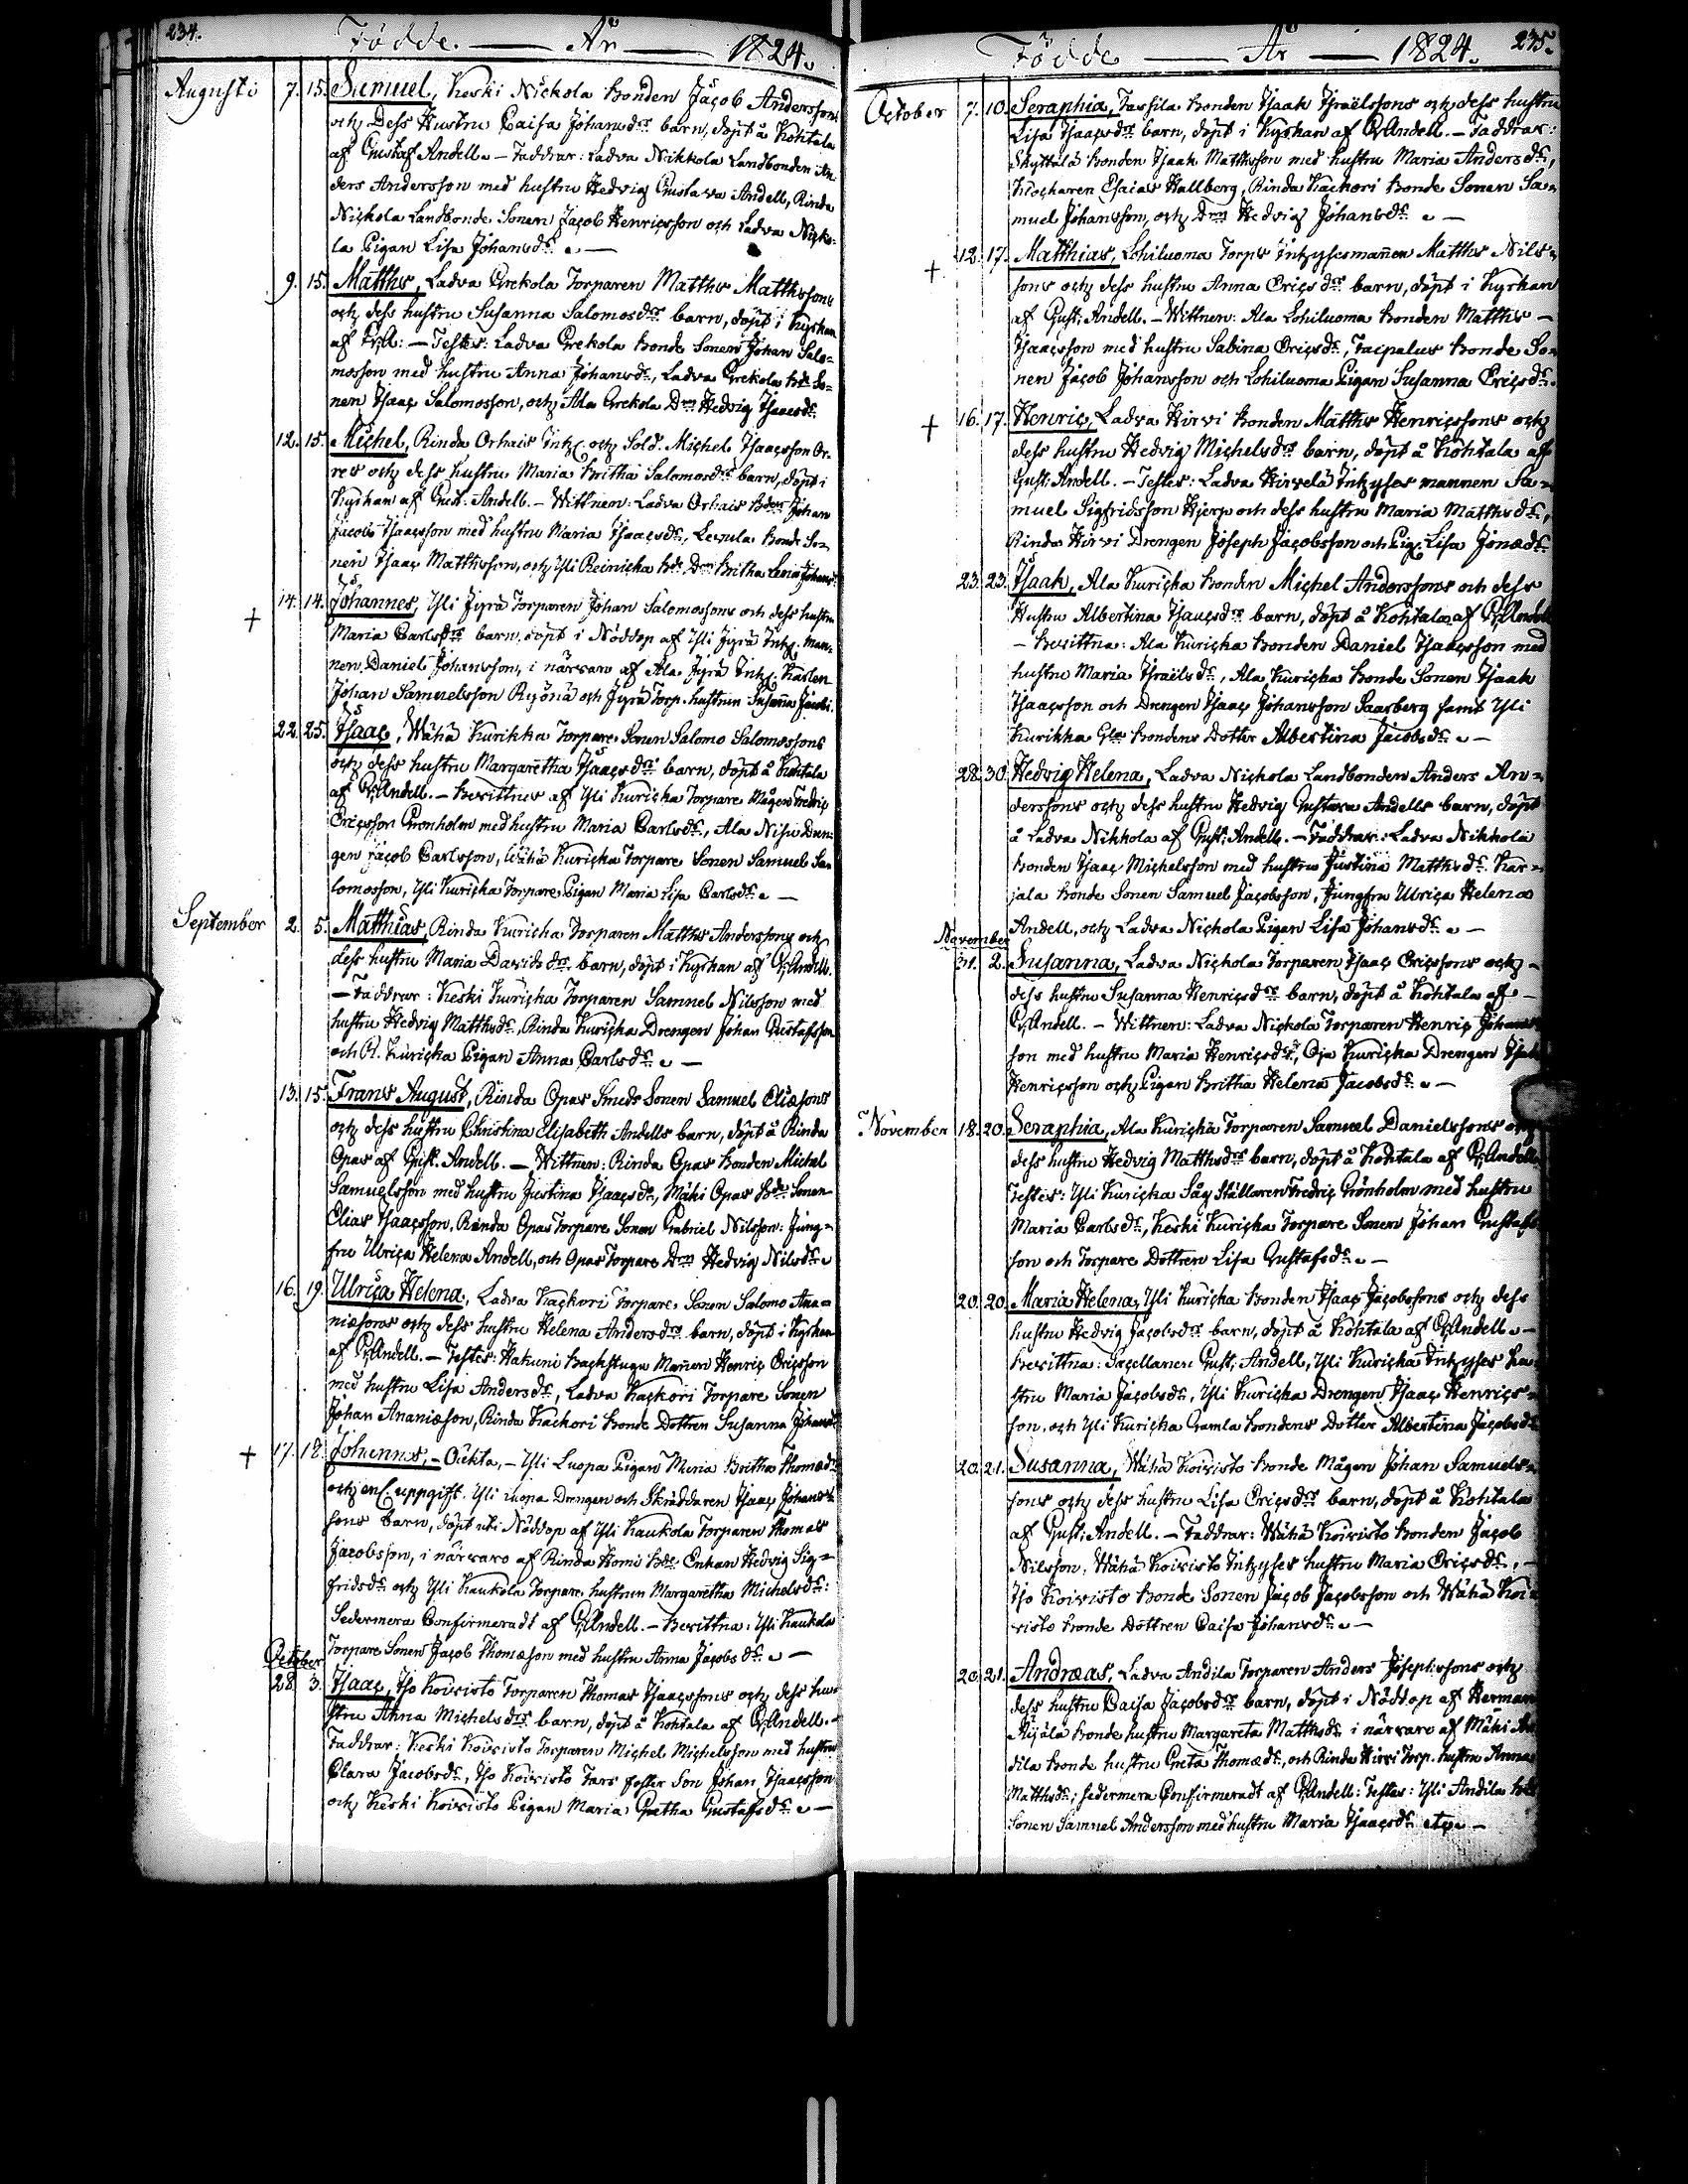 234.
Födde. — År — 1824.
Augusti 7. 15. Samuel, Keski Nickola Bonden Jacob Anderssons
och Dess Hustru Caisa Johansdrs barn, döpt å Kohtala
af Gustaf Andell. — Faddrar: Ladva Nikkola Landbonden An-
ders Andersson med hustru Hedvig Gustava Andell, Rinda
Nickola Landbonde Sonen Jacob Henricsson och Ladva Nicko-
la Pigan Lisa Johansdr. —
9. 15. Matths, Ladva Grekola Torparen Matths Matthssons
och dess hustru Susanna Salomosdrs barn, döpt i Kyrkan
af G. A: — Testes: Ladva Grekola Bonde Sonen Johan Salo-
mosson med hustru Anna Johansdr, Ladva Grekola Bde So-
nen Isaac Salomosson, och Ala Grekola Dr Hedvig Isaacsdr
12. 15. Michel, Rinda Orhais Inh. och Sold. Michel Isaacsson Or-
res och dess hustru Maria Britha Salomosdrs barn, döpt i
Kyrkan af Gust. Andell. — Wittnen: Ladva Orhais Bden Johan
Jacob Isaacsson med hustru Maria Isaacsdr, Levula Bonde So-
nen Isaac Matthsson, och Yli Reinicka Bds Dr Britha Lena Johansdr
+ 14. 14. Johannes, Yli Jyrä Torparen Johan Salomossons och dess hustru
Maria Carlsdrs barn, döpt i Nöddop af Yli Jyrä Inh. Man-
nen Daniel Johansson, i närvaro af Ala Jyrä Inh. Karlen
Johan Samuelsson Ryönä och Jyrä Torp. hustrun Susanna Jacobs.
22. 25. Isaac, Wähä Kurikka Torpare Sonen Salomo Salomossons
och dess hustru Margaretha Isaacsdrs barn, döpt å Kohtala
af G. Andell. — Bevittnes af Yli Kuricka Torpare Mågen Fredric
Ericsson Grönholm med hustru Maria Carlsdr, Ala Nisu Dren-
gen Jacob Carlsson, Wähä Kuricka Torpare Sonen Samuel Sa-
lomosson, Yli Kuricka Torpare Pigan Maria Lisa Carlsdr. —
September 2. 5. Matthias, Rinda Kuricka Torparen Matths Anderssons och
dess hustru Maria Davidsdrs barn, döpt i Kyrkan af G. Andell.
— Faddrar: Keski Kuricka Torparen Samuel Nilsson med
hustru Hedvig Matthsdr, Rinda Kuricka Drengen Johan Gustafsson
och Kuricka Pigan Anna Carlsdr. —
13. 15. Frans August, Rinda Opas Smeds Sonen Samuel Eliæsons
och dess hustru Christina Elisabeth Andells barn, döpt å Rinda
Opas af Gust. Andell. — Wittnen: Rinda Opas Bonden Michel
Samuelsson med hustru Justina Isaacsdr, Mäki Opas Bde Sonen
Elias Isaacsson, Rinda Opas Torpare Sonen Gabriel Nilsson: Jung-
fru Ulrica Helena Andell, och Opas Torpare Dr Hedvig Nilsdr.
16. 19. Ulrica Helena, Ladva Kackori Torpare Sonen Salomo Ana-
niæsons och dess hustru Helena Andersdrs barn, döpt i Kyrkan
af G. Andell. — Testes: Hakuni Backstugu Manen Henric Ericsson
med hustru Lisa Andersdr, Ladva Kackori Torpare Sonen
Johan Ananiæson, Rinda Kackori Bonde Dottren Susanna Johansdr
+ 17. 18. Johannes, — Oäkta, — Yli Luopa Pigan Maria Britha Thomædrs
och enl. uppgift. Yli Luopa Drengen och Skräddaren Isaac Johans-
sons barn, döpt uti Nöddop af Yli Kaukola Torparen Thomas
Jacobsson, i närvaro af Rinda Homi Bds Enkan Hedvig Sig-
fridsdr och Yli Kaukola Torpare hustrun Margaretha Michelsdr:
Sedermera Confirmeradt af G. Andell. — Bevittna: Yli Kaukola
Torpare Sonen Jacob Thomæson med hustru Anna Jacobsdr. —
October
28. 3. Isaac, Iso Koivisto Torparen Thomas Isaacssons och dess hu-
stru Anna Michelsdrs barn, döpt å Kohtala af G. Andell. —
Faddrar: Keski Koivisto Torparen Michel Michelsson med hustru
Clara Jacobsdr, Iso Koivisto Tors foster Son Johan Isaacsson
och Keski Koivisto Pigan Maria Gretha Gustafsdr. —
235.
Födde — År — 1824.
October 7. 10. Seraphia, Jassila Bonden Isaak Israëlssons och dess hustru
Lisa Isaacsdrs barn, döpt i Kyrkan af G. Andell. — Faddrar:
Skyttälä Bonden Isaak Matthsson med hustru Maria Andersdr,
Klockaren Esaias Hallberg, Rinda Kackori Bonde Sonen Sa-
muel Johansson, och Dr Hedvig Johansdr. —
+ 12. 17. Matthias, Lohiluoma Torps Inhysesmañen Matths Nils-
sons och dess hustru Anna Ericsdrs barn, döpt i Kyrkan
af Gust: Andell. — Wittnen: Ala Lohiluoma Bonden Matths —
Isaacsson med hustru Sabina Ericsdr, Taipalus Bonde So-
nen Jacob Johansson och Lohiluoma Pigan Susanna Ericsdr.
+ 16. 17. Henric, Ladva Hirvi Bonden Matths Henricssons och
dess hustru Hedvig Michelsdrs barn, döpt å Kohtala af
Gust: Andell. — Testes: Ladva Hirvelä Inhyses mannen Sa-
muel Sigfridsson Hjerp och dess hustru Maria Matthsdr,
Rinda Hirvi Drengen Joseph Jacobsson och Pig. Lisa Jonædr.
23. 23. Isaak, Ala Kuricka Bonden Michel Anderssons och dess
Hustru Albertina Isaacsdrs barn, döpt å Kohtala af G. Andell
— Bevittna: Ala Kuricka Bonden Daniel Isaacsson med
hustru Maria Israëlsdr, Ala Kuricka Bonde Sonen Isaak
Isaacsson och Drengen Isaac Johansson Saarberg samt Yli
Kurikka Gla Bondens Dotter Albertina Jacobsdr. —
28. 30. Hedvig Helena, Ladva Nickola Landbonden Anders An-
derssons och dess hustru Hedvig Gustava Andells barn, döpt
å Ladva Nikkola af Gust: Andell. — Faddrar: Ladva Nikkola
Bonden Isaac Michelsson med hustru Justina Matthsdr Kar-
jala Bonde Sonen Samuel Jacobsson, Jungfru Ulrica Helena
Andell, och Ladva Nickola Pigan Lisa Johansdr. —
November
31. 2. Susanna, Ladva Nickola Torparen Isaac Ericssons och —
dess hustru Susanna Henricsdrs barn, döpt å Kohtala af —
G. Andell. — Wittnen: Ladva Nickola Torparen Henric Johans-
son med hustru Maria Henricsdr, Oja Kuricka Drengen
Henricsson och Pigan Britha Helena Jacobsdr. —
November 18. 20. Seraphia, Ala Kuricka Torparen Samuel Danielssons och
dess hustru Hedvig Matthsdrs barn, döpt å Kohtala af G. Andell.
Testes: Yli Kuricka Såg Ställaren Fredric Grönholm med hustru
Maria Carlsdr, Keski Kuricka Torpare Sonen Johan Gustafs-
son och Torpare Dottren Lisa Gustafsdr. —
20. 20. Maria Helena, Yli Kuricka Bonden Isaac Jacobssons och dess
hustru Hedvig Jacobsdrs barn, döpt å Kohtala af G. Andell. —
Bevittna: Sacellanen Gust: Andell, Yli Kuricka Inhyses hu-
stru Maria Jacobsdr, Yli Kuricka Drengen Isaac Henrics-
son, och Yli Kuricka Gamla Bondens Dotter Albertina Jacobsdr
20. 21. Susanna, Wähä Koivisto Bonde Mågen Johan Samuels-
sons och dess hustru Lisa Ericsdrs barn, döpt å Kohtala
af Gust: Andell. — Faddrar: Wähä Koivisto Bonden Jacob
Nilsson, Wähä Koivisto Inhyses hustru Maria Ericsdr, —
Iso Koivisto Bonde Sonen Jacob Jacobsson och Wähä Koi-
visto Bonde Dottren Caisa Johansdr. —
20. 21. Andreas, Ladva Andila Torparen Anders Josephssons och
dess hustru Caisa Jacobsdrs barn, döpt i Nöddop af Herman
Äijälä Bonde hustru Margareta Matthsdr i närvaro af Mäki An-
dila Bonde hustru Greta Thomædr, och Rinda Hirvi Torp. hustru Anna
Matthsdr; sedermera Confirmeradt af G. Andell: Testes: Yli Andila Bde
Sonen Samuel Andersson med hustru Maria Isaacsdr etc. —